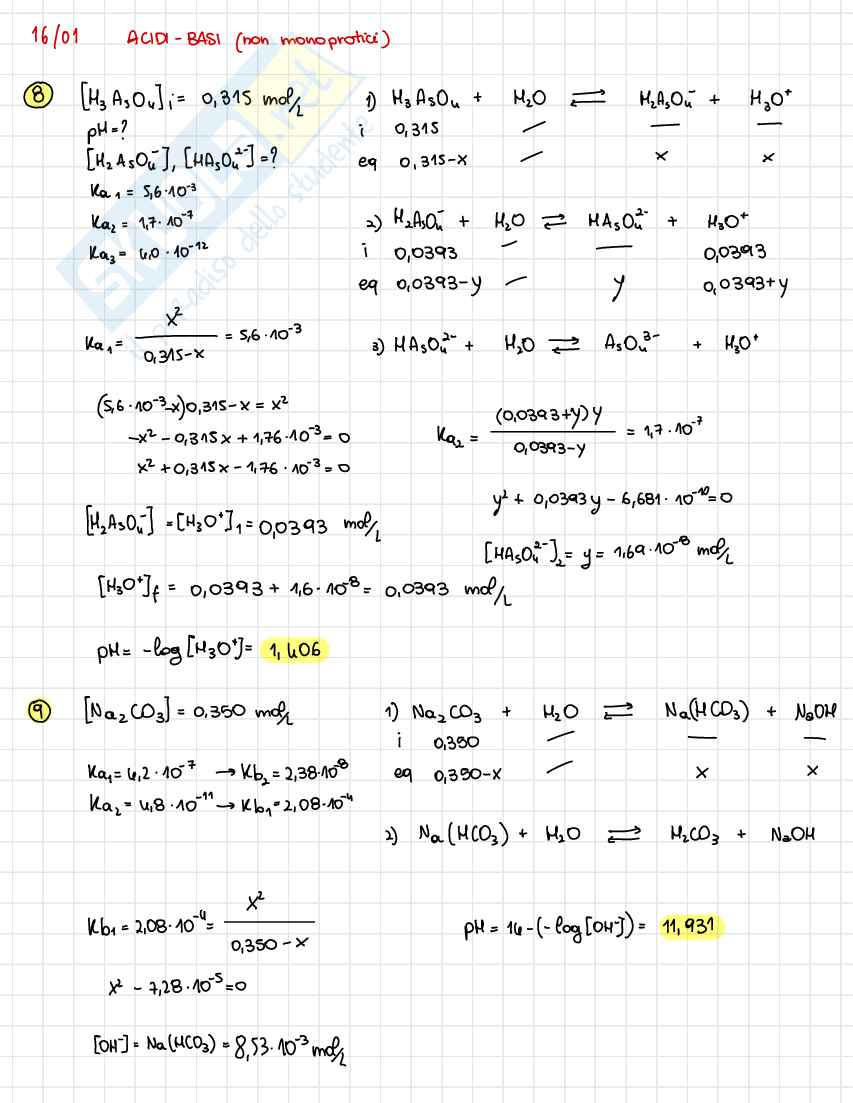 16/01 ACIDI-BASI (non monoprotici)
8 [H₃AsO₄]i = 0,315 mol/L
pH=?
[H₂AsO₄⁻], [HAsO₄²⁻]=?
Ka₁ = 5,6·10⁻³
Ka₂ = 1,7·10⁻⁷
Ka₃ = 4,0·10⁻¹²
1) H₃AsO₄ + H₂O ⇌ H₂AsO₄⁻ + H₃O⁺
i 0,315 / — —
eq 0,315-x / x x
2) H₂AsO₄⁻ + H₂O ⇌ HAsO₄²⁻ + H₃O⁺
i 0,0393 / — 0,0393
eq 0,0393-y / y 0,0393+y
3) HAsO₄²⁻ + H₂O ⇌ AsO₄³⁻ + H₃O⁺
Ka₁ = x² / (0,315-x) = 5,6·10⁻³
(5,6·10⁻³-x)0,315-x = x²
-x² - 0,315x + 1,76·10⁻³ = 0
x² + 0,315x - 1,76·10⁻³ = 0
[H₂AsO₄⁻] = [H₃O⁺]₁ = 0,0393 mol/L
Ka₂ = (0,0393+y)y / 0,0393-y = 1,7·10⁻⁷
y² + 0,0393y - 6,681·10⁻¹⁰=0
[HAsO₄²⁻]₂ = y = 1,69·10⁻⁸ mol/L
[H₃O⁺]f = 0,0393 + 1,6·10⁻⁸ = 0,0393 mol/L
pH = -log[H₃O⁺] = 1,406
9 [Na₂CO₃] = 0,350 mol/L
Ka₁ = 4,2·10⁻⁷ → Kb₂ = 2,38·10⁻⁸
Ka₂ = 4,8·10⁻¹¹ → Kb₁ = 2,08·10⁻⁴
1) Na₂CO₃ + H₂O ⇌ Na(HCO₃) + NaOH
i 0,350 / — —
eq 0,350-x / x x
2) Na(HCO₃) + H₂O ⇌ H₂CO₃ + NaOH
Kb₁ = 2,08·10⁻⁴ = x² / 0,350-x
x² - 7,28·10⁻⁵ = 0
[OH⁻] = Na(HCO₃) = 8,53·10⁻³ mol/L
pH = 14-(-log[OH⁻]) = 11,931
SKUOLA.net
il paradiso dello studente